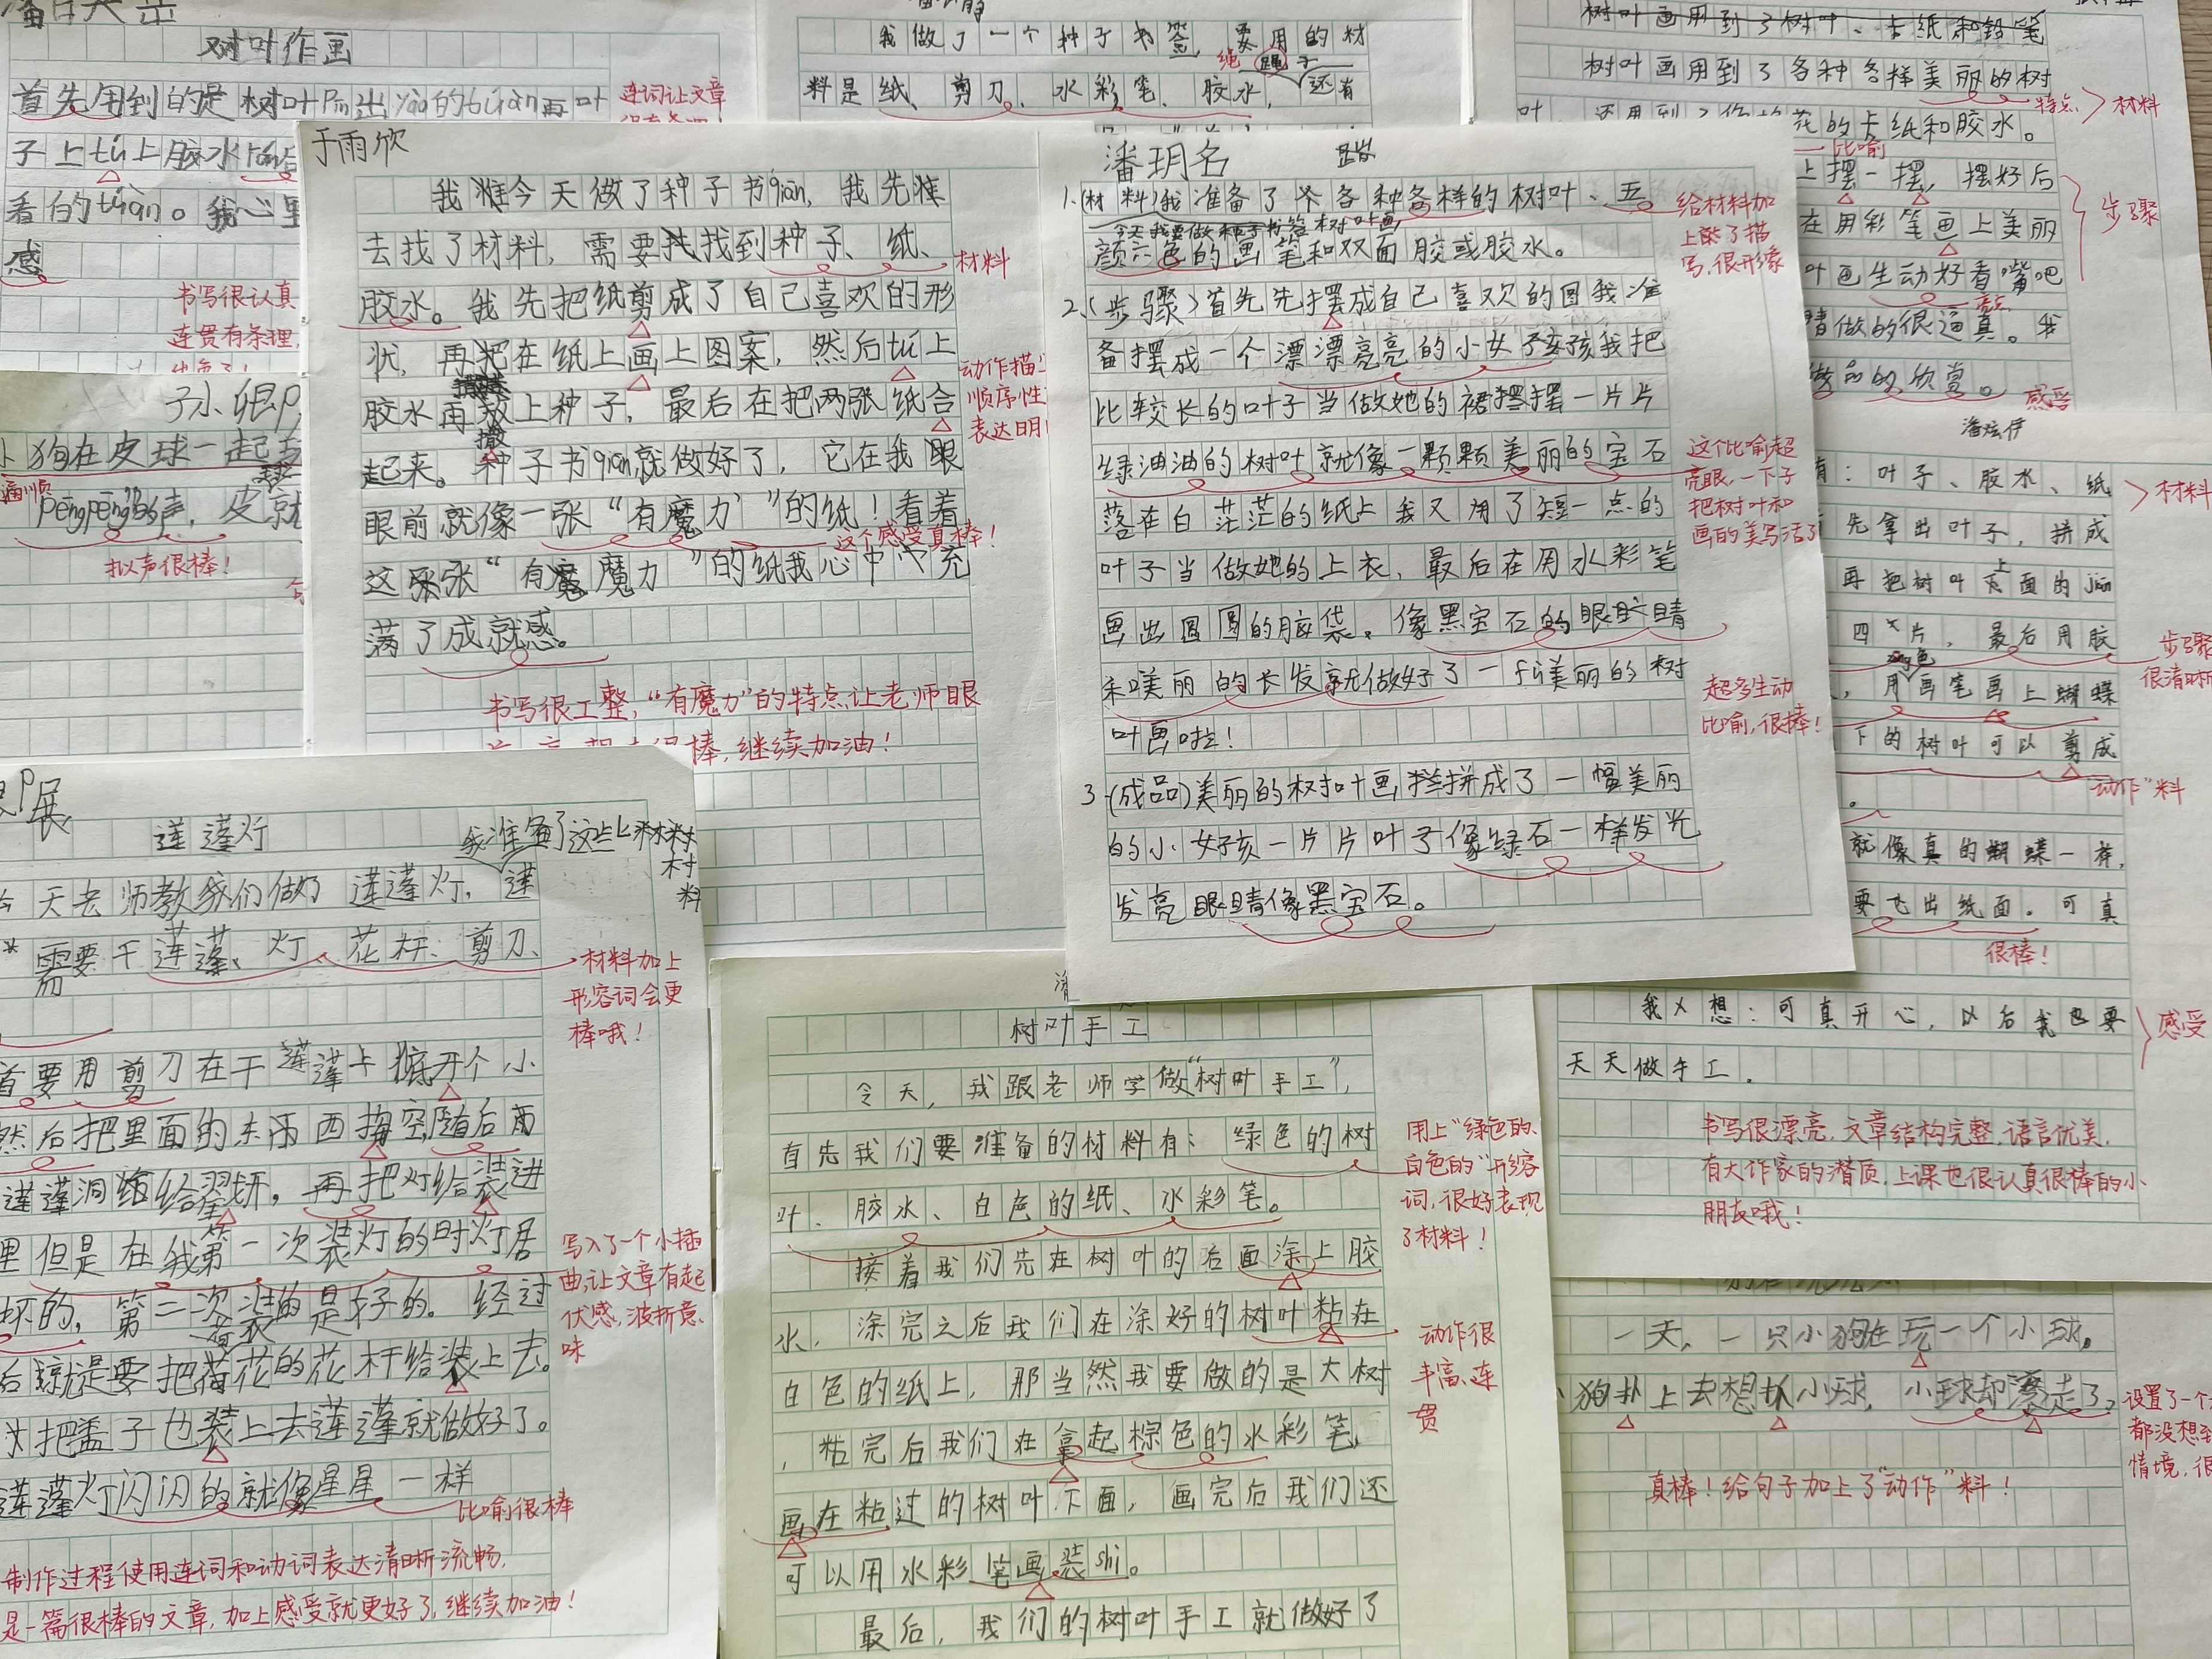 树叶作画
首先用到的是树叶Pīn出yào的tú àn再叶
子上tú上胶水
看的tú àn。我心里
感
连词让文章
书写很认真
连贯有条理,
我做了一个种子书签,要用的材
绳子
料是纸、剪刀、水彩笔、胶水,还有
树叶画用到了树叶、卡纸和铅笔
树叶画用到了各种各样美丽的树
特点 材料
花的卡纸和胶水。
比喻
上摆一摆,摆好后
步骤
在用彩笔画上美丽
叶画生动好看嘴吧
亮点
睛做的很逼真。我
做品的欣赏。
感受
于雨欣
我准今天做了种子书qiān,我先准
去找了材料,需要找找到种子、纸、
材料
胶水。我先把纸剪成了自己喜欢的形
状,再把在纸上画上图案,然后tú上
胶水再放上种子,最后在把两张纸合
撒
起来。种子书qiān就做好了,它在我眼
眼前就像一张“有魔力”的纸!看着
这个感受真棒!
这张张“有魔魔力”的纸我心中充
满了成就感。
动作描
顺序性
表达明
书写很工整,“有魔力”的特点让老师眼
棒,继续加油!
潘玥名
1.(材料)我准备了各种各样的树叶、五
今天我要做种子书签树叶画
颜六色的画笔和双面胶或胶水。
给材料加
上些了描
写,很形象
2.(步骤)首先先摆成自己喜欢的图我准
备摆成一个漂漂亮亮的小女子孩我把
比较长的叶子当做她的裙摆摆一片片
绿油油的树叶就像一颗颗美丽的宝石
落在白茫茫的纸上我又用了短一点的
叶子当做她的上衣,最后在用水彩笔
画出圆圆的脑袋。像黑宝石的眼睛
和美丽的长发就做好了一fú美丽的树
叶画啦!
这个比喻超
亮眼,一下子
把树叶和
画的美写活了
超多生动
比喻,很棒!
3.(成品)美丽的树叶画拼成了一幅美丽
的小女孩一片片叶子像绿石一样发光
发亮眼睛像黑宝石。
小狗在皮球一起
通顺
pēngpēng的声,皮就
拟声很棒!
潘炫伊
有:叶子、胶水、纸
材料
先拿出叶子,拼成
再把树叶下面的jiān
上
四片,最后用胶
步骤
很清晰
,用画笔画上蝴蝶
下的树叶可以剪成
“动作”料
就像真的蝴蝶一样,
要飞出纸面。可真
很棒!
我想:可真开心,以后我也要
天天做手工.
感受
书写很漂亮,文章结构完整,语言优美,
有大作家的潜质,上课也很认真很棒的小
朋友哦!
莲蓬灯
我准备了这些材料
今天老师教我们做了莲蓬灯,莲
需要干莲蓬、灯、花杆、剪刀、
材料加上
形容词会更
棒哦!
首要用剪刀在干莲蓬上掀开个小
然后把里面的东西掏空随后
莲蓬洞给,再把灯给装进
里但是在我第一次装灯的时灯居
坏的,第二次装的是好的。经过
后就是要把荷花的花杆给装上去。
把盖子也装上去莲蓬就做好了。
莲蓬灯闪闪的就像星星一样
比喻很棒
写入了一个小插
曲,让文章有起
伏感,波折意
味
制作过程使用连词和动词表达清晰流畅,
是一篇很棒的文章,加上感受就更好了,继续加油!
树叶手工
今天,我跟老师学做“树叶手工”,
首先我们要准备的材料有:绿色的树
叶、胶水、白色的纸、水彩笔。
用上“绿色的、
白色的”形容
词,很好表现
了材料!
接着我们先在树叶的后面涂上胶
水,涂完之后我们在涂好的树叶粘在
白色的纸上,那当然我要做的是大树
,粘完后我们在拿起棕色的水彩笔
画在粘过的树叶下面,画完后我们还
可以用水彩笔画装shi。
动作很
丰富、连
贯
最后,我们的树叶手工就做好了
一天,一只小狗在玩一个小球。
狗扑上去想抓小球,小球却滚走了,
设置了一个
都没想到
情境,很
真棒!给句子加上了“动作”料!